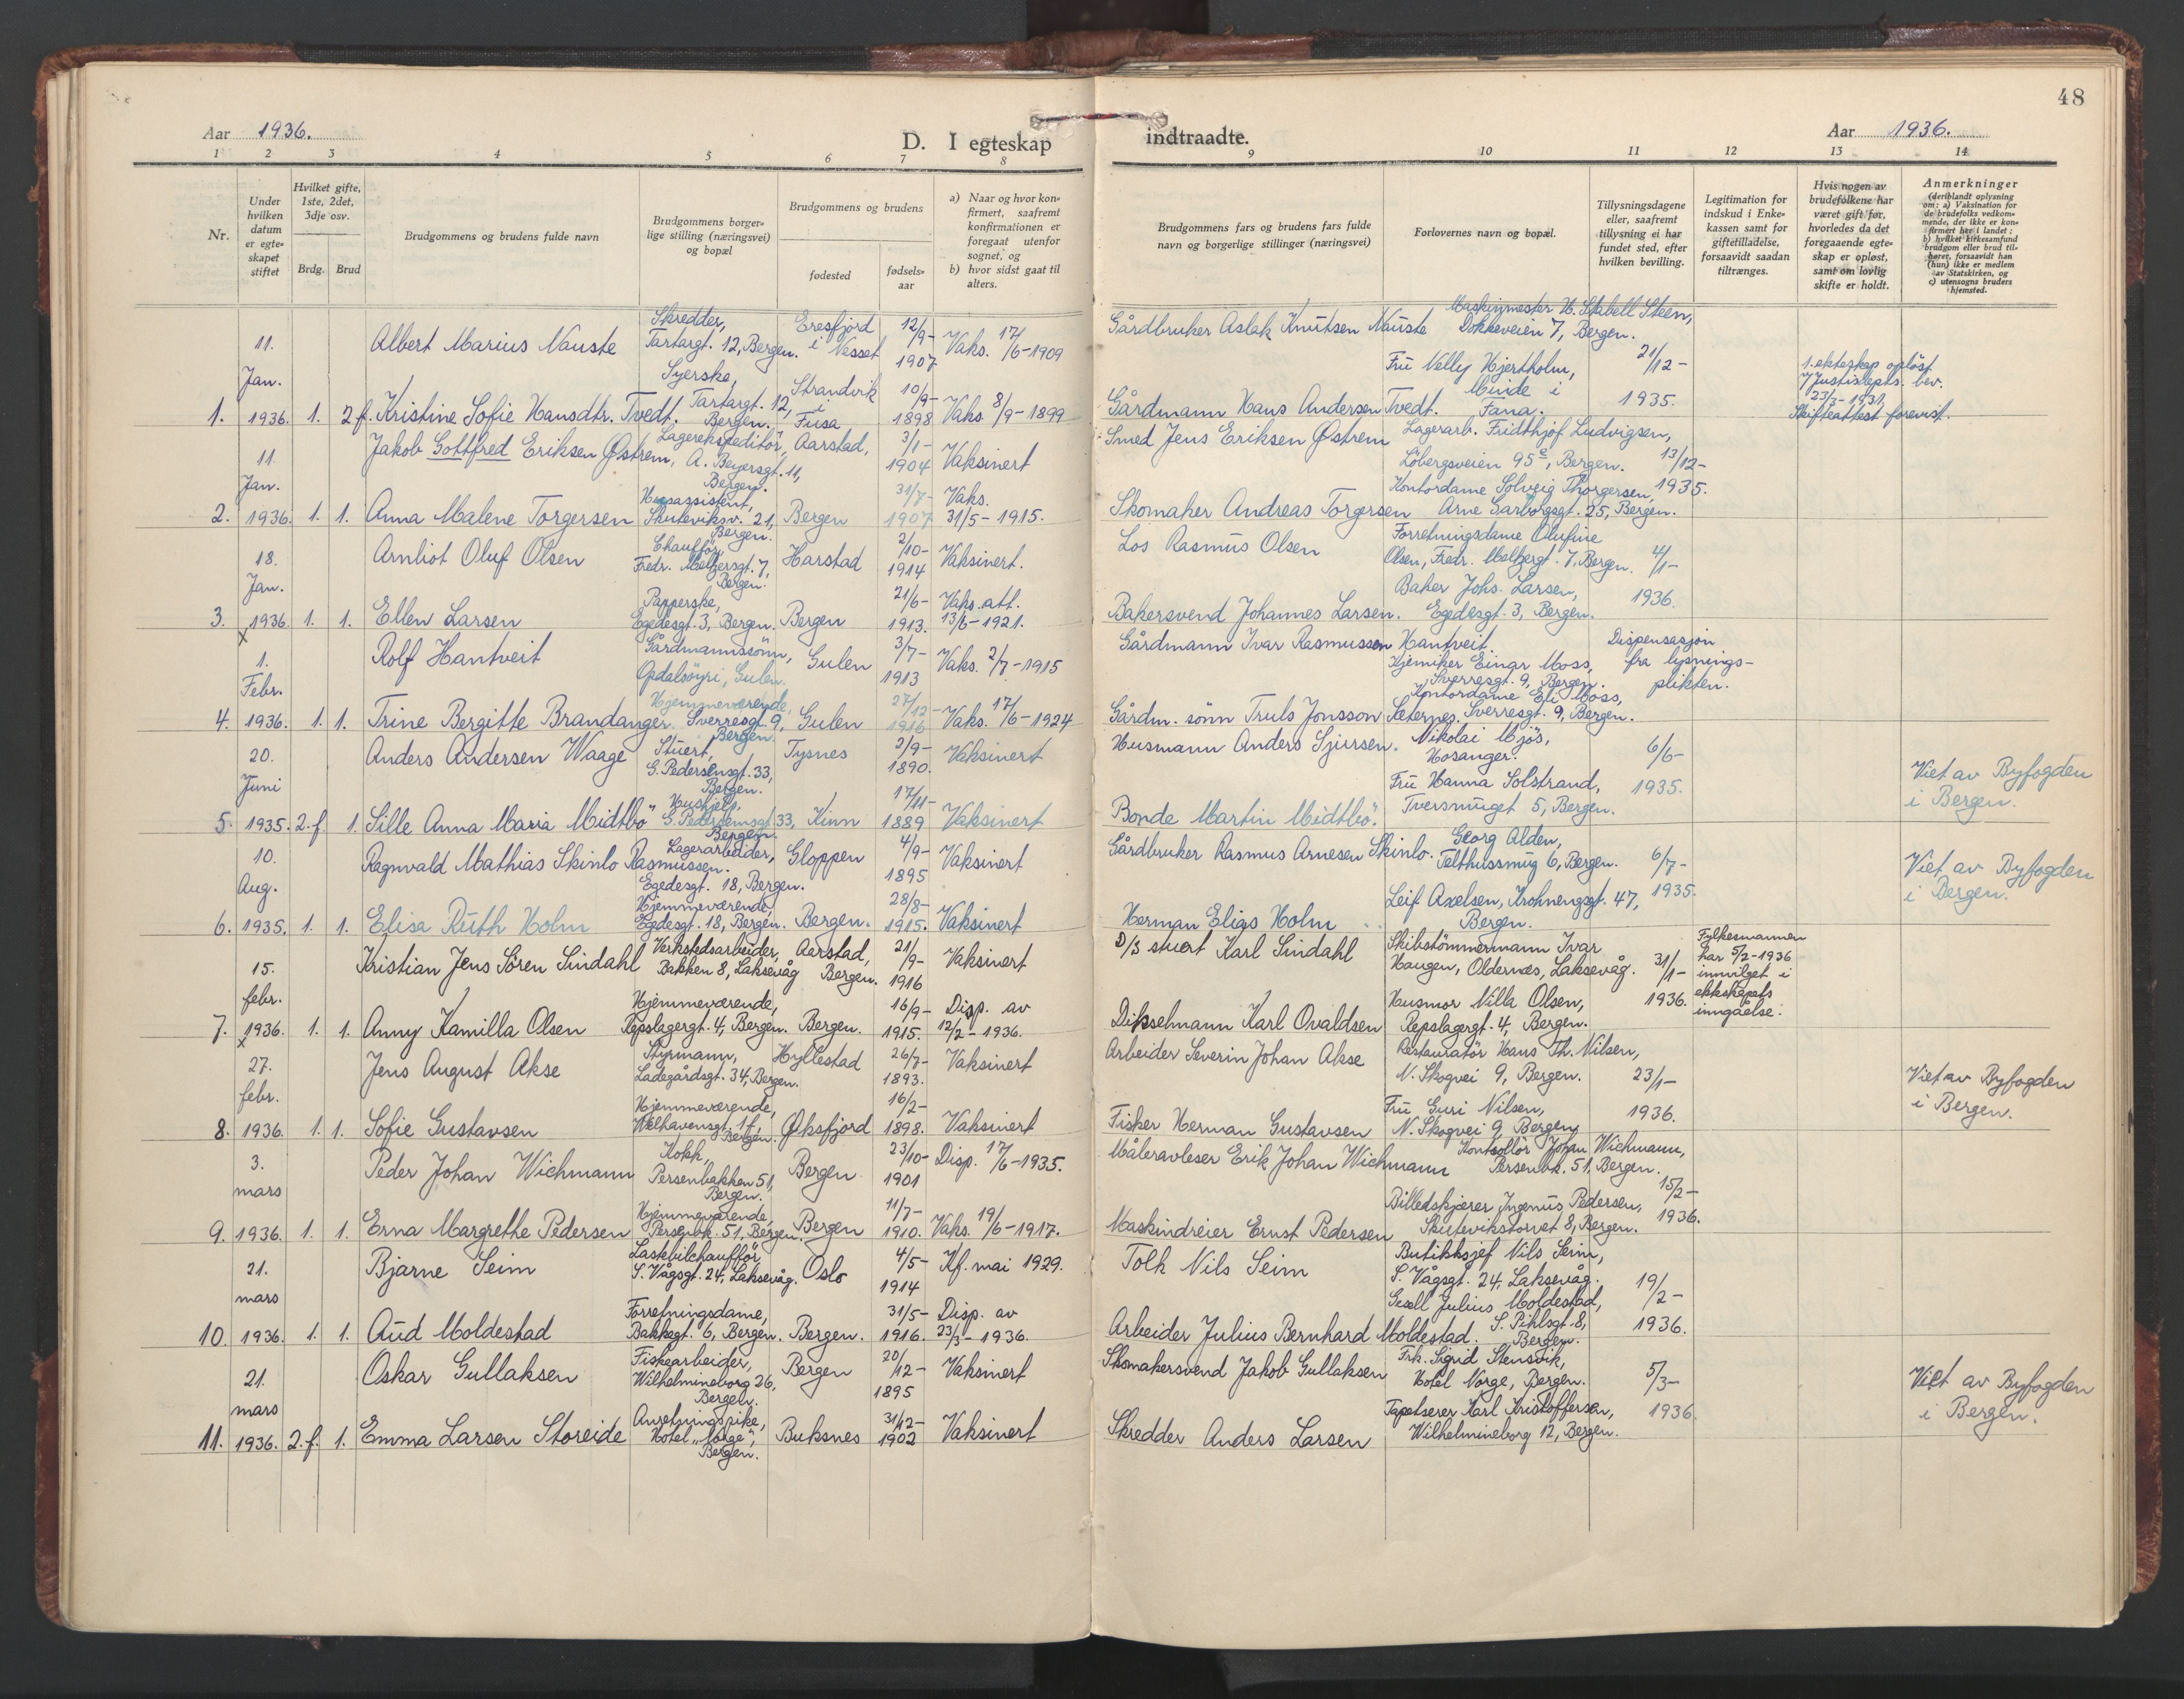 48
Aar 1936.
D. I egteskap indtraadte.
Aar 1936.
1 2 3 4 5 6 7 8 9 10 11 12 13 14
Nr.
Under hvilken datum er egteskapet stiftet
Hvilket gifte, 1ste, 2det, 3dje osv.
Brdg. Brud
Brudgommens og brudens fulde navn
Brudgommens borgerlige stilling (næringsvei) og bopæl
Brudgommens og brudens
fødested
fødselsaar
a) Naar og hvor konfirmert, saafremt konfirmationen er foregaat utenfor sognet, og
b) hvor sidst gaat til alters.
Brudgommens fars og brudens fars fulde navn og borgerlige stillinger (næringsvei)
Forlovernes navn og bopæl.
Tillysningsdagene eller, saafremt tillysning ei har fundet sted, efter hvilken bevilling.
Legitimation for indskud i Enkekassen samt for giftetilladelse, forsaavidt saadan tiltrænges.
Hvis nogen av brudefolkene har været gift før, hvorledes da det foregaaende egteskap er opløst, samt om lovlig skifte er holdt.
Anmerkninger (deriblandt oplysning om: a) Vaksination for de brudefolks vedkommende, der ikke er konfirmert her i landet; b) hvilket kirkesamfund brudgom eller brud tilhører, forsaavidt han (hun) ikke er medlem av Statskirken, og c) utensogns bruders hjemsted.
11. Jan. Albert Marius Nauste Skredder, Tartargt. 12, Bergen. Eresfjord i Nesset 12/9-1907 Vaks. 17/6-1909 Gårdbruker Aslak Knutsen Nauste Maskinmester H. Stabell Steen, Dokkeveien 7, Bergen.
1. 1936. 1. 2 f. Kristine Sofie Hansdtr. Tvedt. Syerske, Tartargt. 12, Bergen. Strandvik i Fusa 10/9-1898 Vaks. 8/9-1899 Gårdmann Hans Andersen Tvedt. Fru Nelly Hjertholm, Minde i Fana. 21/12-1935. 1. ekteskap opløst 7/ Justisdepts. bev. 23/3-1931. Skifteattest forevist.
11. Jan. Jakob Gottfred Eriksen Østrem, Lagerekspeditör, A. Beyersgt. 11, Bergen. Aarstad, 3/1-1904 Vaksinert Smed Jens Eriksen Østrem Lagerarb. Fridthjof Ludvigsen, Löbergsveien 95e, Bergen.
2. 1936. 1. 1. Anna Malene Torgersen Husassistent, Skuteviksv. 21, Bergen. Bergen 31/7-1907 Vaks. 31/5-1915. Skomaker Andreas Torgersen Kontordame Solveig Thorgersen, Arne Garborgsgt. 25, Bergen. 13/12-1935.
18. Jan. Arnliot Oluf Olsen Chauffør, Fredr. Meltzersgt. 7, Bergen. Harstad 2/10-1914 Vaksinert. Los Rasmus Olsen Forretningsdame Olufine Olsen, Fredr. Meltzergt. 7, Bergen.
3. 1936. 1. 1. Ellen Larsen Papperske, Egedesgt. 3, Bergen. Bergen 21/6-1913. Vaks. att. 13/6-1921. Bakersvend Johannes Larsen. Baker Johs. Larsen, Egedesgt. 3, Bergen. 4/1-1936.
x 1. Febr. Rolf Hantveit Gårdmannssönn, Opdalsöyri, Gulen. Gulen 3/7-1913 Vaks. 2/7-1915 Gårdmann Ivar Rasmussen Hantveit. Kjemiker Einar Moss, Sverresgt. 9, Bergen. Dispensasjon fra lysningsplikten.
4. 1936. 1. 1. Trine Bergitte Brandanger. Hjemmeværende, Sverresgt. 9, Bergen. Gulen 27/12-1916 Vaks. 17/6-1924 Gårdm. sönn Truls Jonsson Sæternes. Kontordame Eli Moss, Sverresgt. 9, Bergen.
20. Juni Anders Andersen Waage Stuert, G. Pedersensgt. 33, Bergen. Tysnes 2/9-1890. Vaksinert Husmann Anders Sjursen. Nikolai Mjös, Hosanger.
5. 1935. 2. f. 1. Sille Anna Maria Midtbö Hushjelp, G. Pedersensgt. 33, Bergen. Kinn 17/11-1889 Vaksinert Bonde Martin Midtbö. Fru Hanna Solstrand, Tversmuget 5, Bergen. 6/6-1935. Viet av Byfogden i Bergen.
10. Aug. Ragnvald Mathias Skinlo Rasmussen. Lagerarbeider, Egedesgt. 18, Bergen. Gloppen 4/9-1895 Vaksinert Gårdbruker Rasmus Arnesen Skinlo. Georg Alden, Telthussmug 6, Bergen.
6. 1935. 1. 1. Elisa Ruth Holm Hjemmeværende, Egedesgt. 18, Bergen. Bergen. 28/8-1915. Vaksinert Herman Elias Holm Leif Axelsen, Krohnengsgt. 47, Bergen. 6/7-1935. Viet av Byfogden i Bergen.
15. febr. Kristian Jens Sören Sindahl Verkstedsarbeider, Bakken 8, Laksevåg Aarstad, Bergen. 21/9-1916 Vaksinert D/S stuert Karl Sindahl Skibstömmermann Ivar Haugen, Oldernæs, Laksevåg.
7. 1936. 1. 1. Anny Kamilla Olsen Hjemmeværende, Repslagergt. 4, Bergen. Bergen. 16/9-1915. Disp. av 12/2-1936. Dikselmann Karl Ovaldsen Husmor Nilla Olsen, Repslagergt. 4, Bergen. 31/1-1936. Fylkesmannen har 5/2-1936 innvilget i ekteskapets inngåelse.
x 27. febr. Jens August Akse Styrmann, Ladegårdsgt. 34, Bergen. Hyllestad 26/7-1893. Vaksinert Arbeider Severin Johan Akse Restauratör Hans Th. Nilsen, N. Skogvei 9, Bergen.
8. 1936. 1. 1. Sofie Gustavsen Hjemmeværende, Welhavensgt. 17, Bergen. Øksfjord 16/2-1898. Vaksinert Fisker Herman Gustavsen Fru Guri Nilsen, N. Skogvei 9 Bergen, 23/1-1936. Viet av Byfogden i Bergen.
3. mars Peder Johan Wichmann Kokk, Persenbakken 51, Bergen. Bergen 23/10-1901 Disp. 17/6-1935. Måleravleser Erik Johan Wichmann Kontrollör Johan Wichmann, Persenbk. 51, Bergen.
9. 1936. 1. 1. Erna Margrethe Pedersen Hjemmeværende, Persenbk. 51, Bergen. Bergen 11/7-1910. Vaks. 19/6-1917. Maskindreier Ernst Pedersen Billedskjærer Ingenus Pedersen, Skutevikstorvet 8, Bergen. 15/2-1936.
21. mars Bjarne Seim Lastebilchauffør, S. Vågsgt. 24, Laksevåg. Oslo 4/5-1914 Kf. mai 1929. Tolk Nils Seim Butikksjef Nils Seim, S. Vågsgt. 24, Laksevåg.
10. 1936. 1. 1. Aud Moldestad Forretningsdame, Bakkegt. 6, Bergen. Bergen. 31/5-1916. Disp. av 23/3-1936. Arbeider Julius Bernhard Moldestad. Gesell Julius Moldestad, S. Pihlsgt. 8, Bergen. 19/2-1936.
21. mars Oskar Gullaksen Fiskearbeider, Wilhelmineborg 26, Bergen. Bergen 20/12-1895 Vaksinert Skomakersvend Jakob Gullaksen Frk. Sigrid Stensvik, Hotel Norge, Bergen.
11. 1936. 2. f. 1. Emma Larsen Storeide Anretningspike, Hotel „Norge", Bergen. Buksnes 31/12-1902 Vaksinert Skredder Anders Larsen Tapetserer Karl Kristoffersen, Wilhelmineborg 12, Bergen. 5/3-1936. Viet av Byfogden i Bergen.